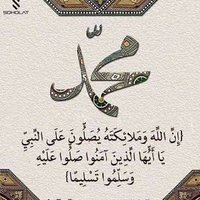 SOHOLAT
محمد
{إِنَّ اللَّهَ وَمَلَائِكَتَهُ يُصَلُّونَ عَلَى النَّبِيِّ
يَا أَيُّهَا الَّذِينَ آمَنُوا صَلُّوا عَلَيْهِ
وَسَلِّمُوا تَسْلِيمًا}